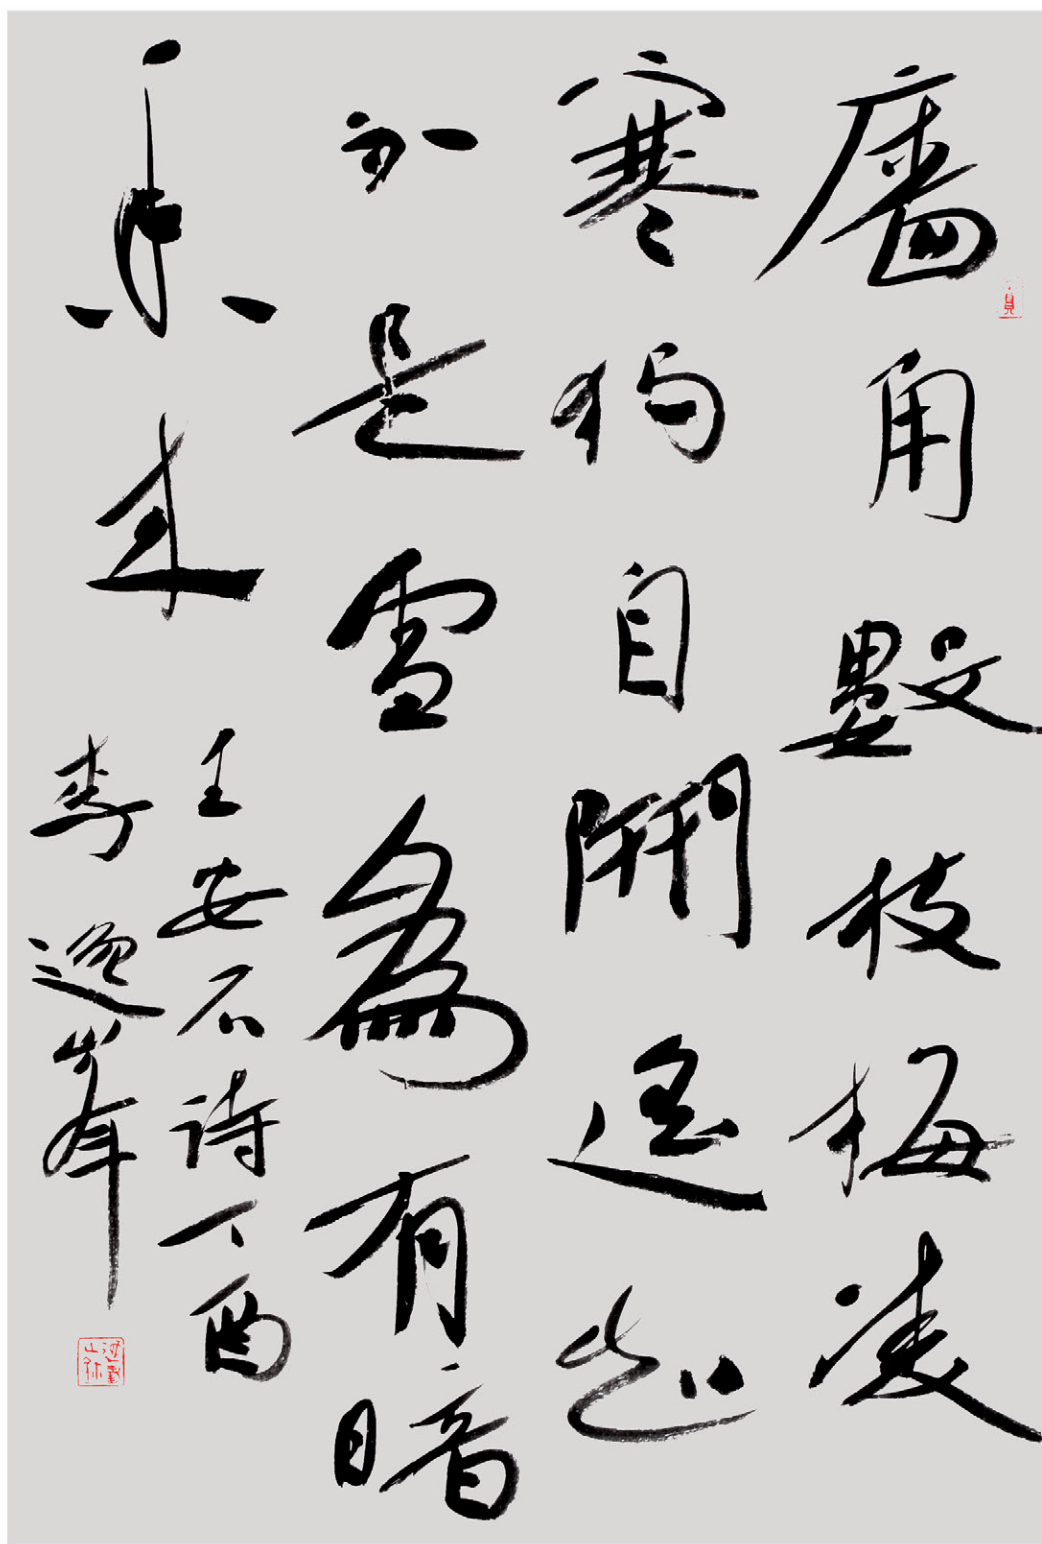 廧角數枝梅凌
寒獨自開遥知
不是雪為有暗
香來
王安石诗丁酉
李逸峰